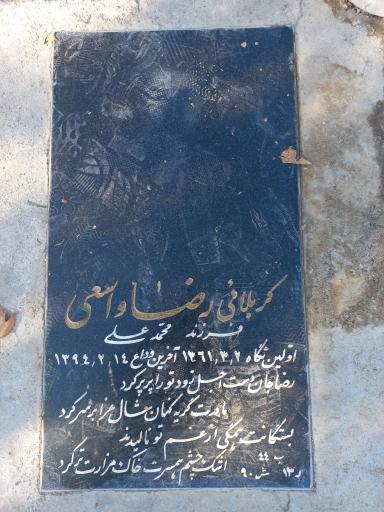 کربلائی رضا واسعی
فرزند محمد علی
اولین نگاه ۱۳۶۱٫۳٫۲ آخرین وداع ۱۳۹۴٫۲٫۱۴
رضا جان دست اجل زود تو را پرپر کرد
مادرت گریه کنان مثال مرا
بستگانت همگی از غم تو نالیدند
اشک چشم همسرت خاک مزارت تر کرد